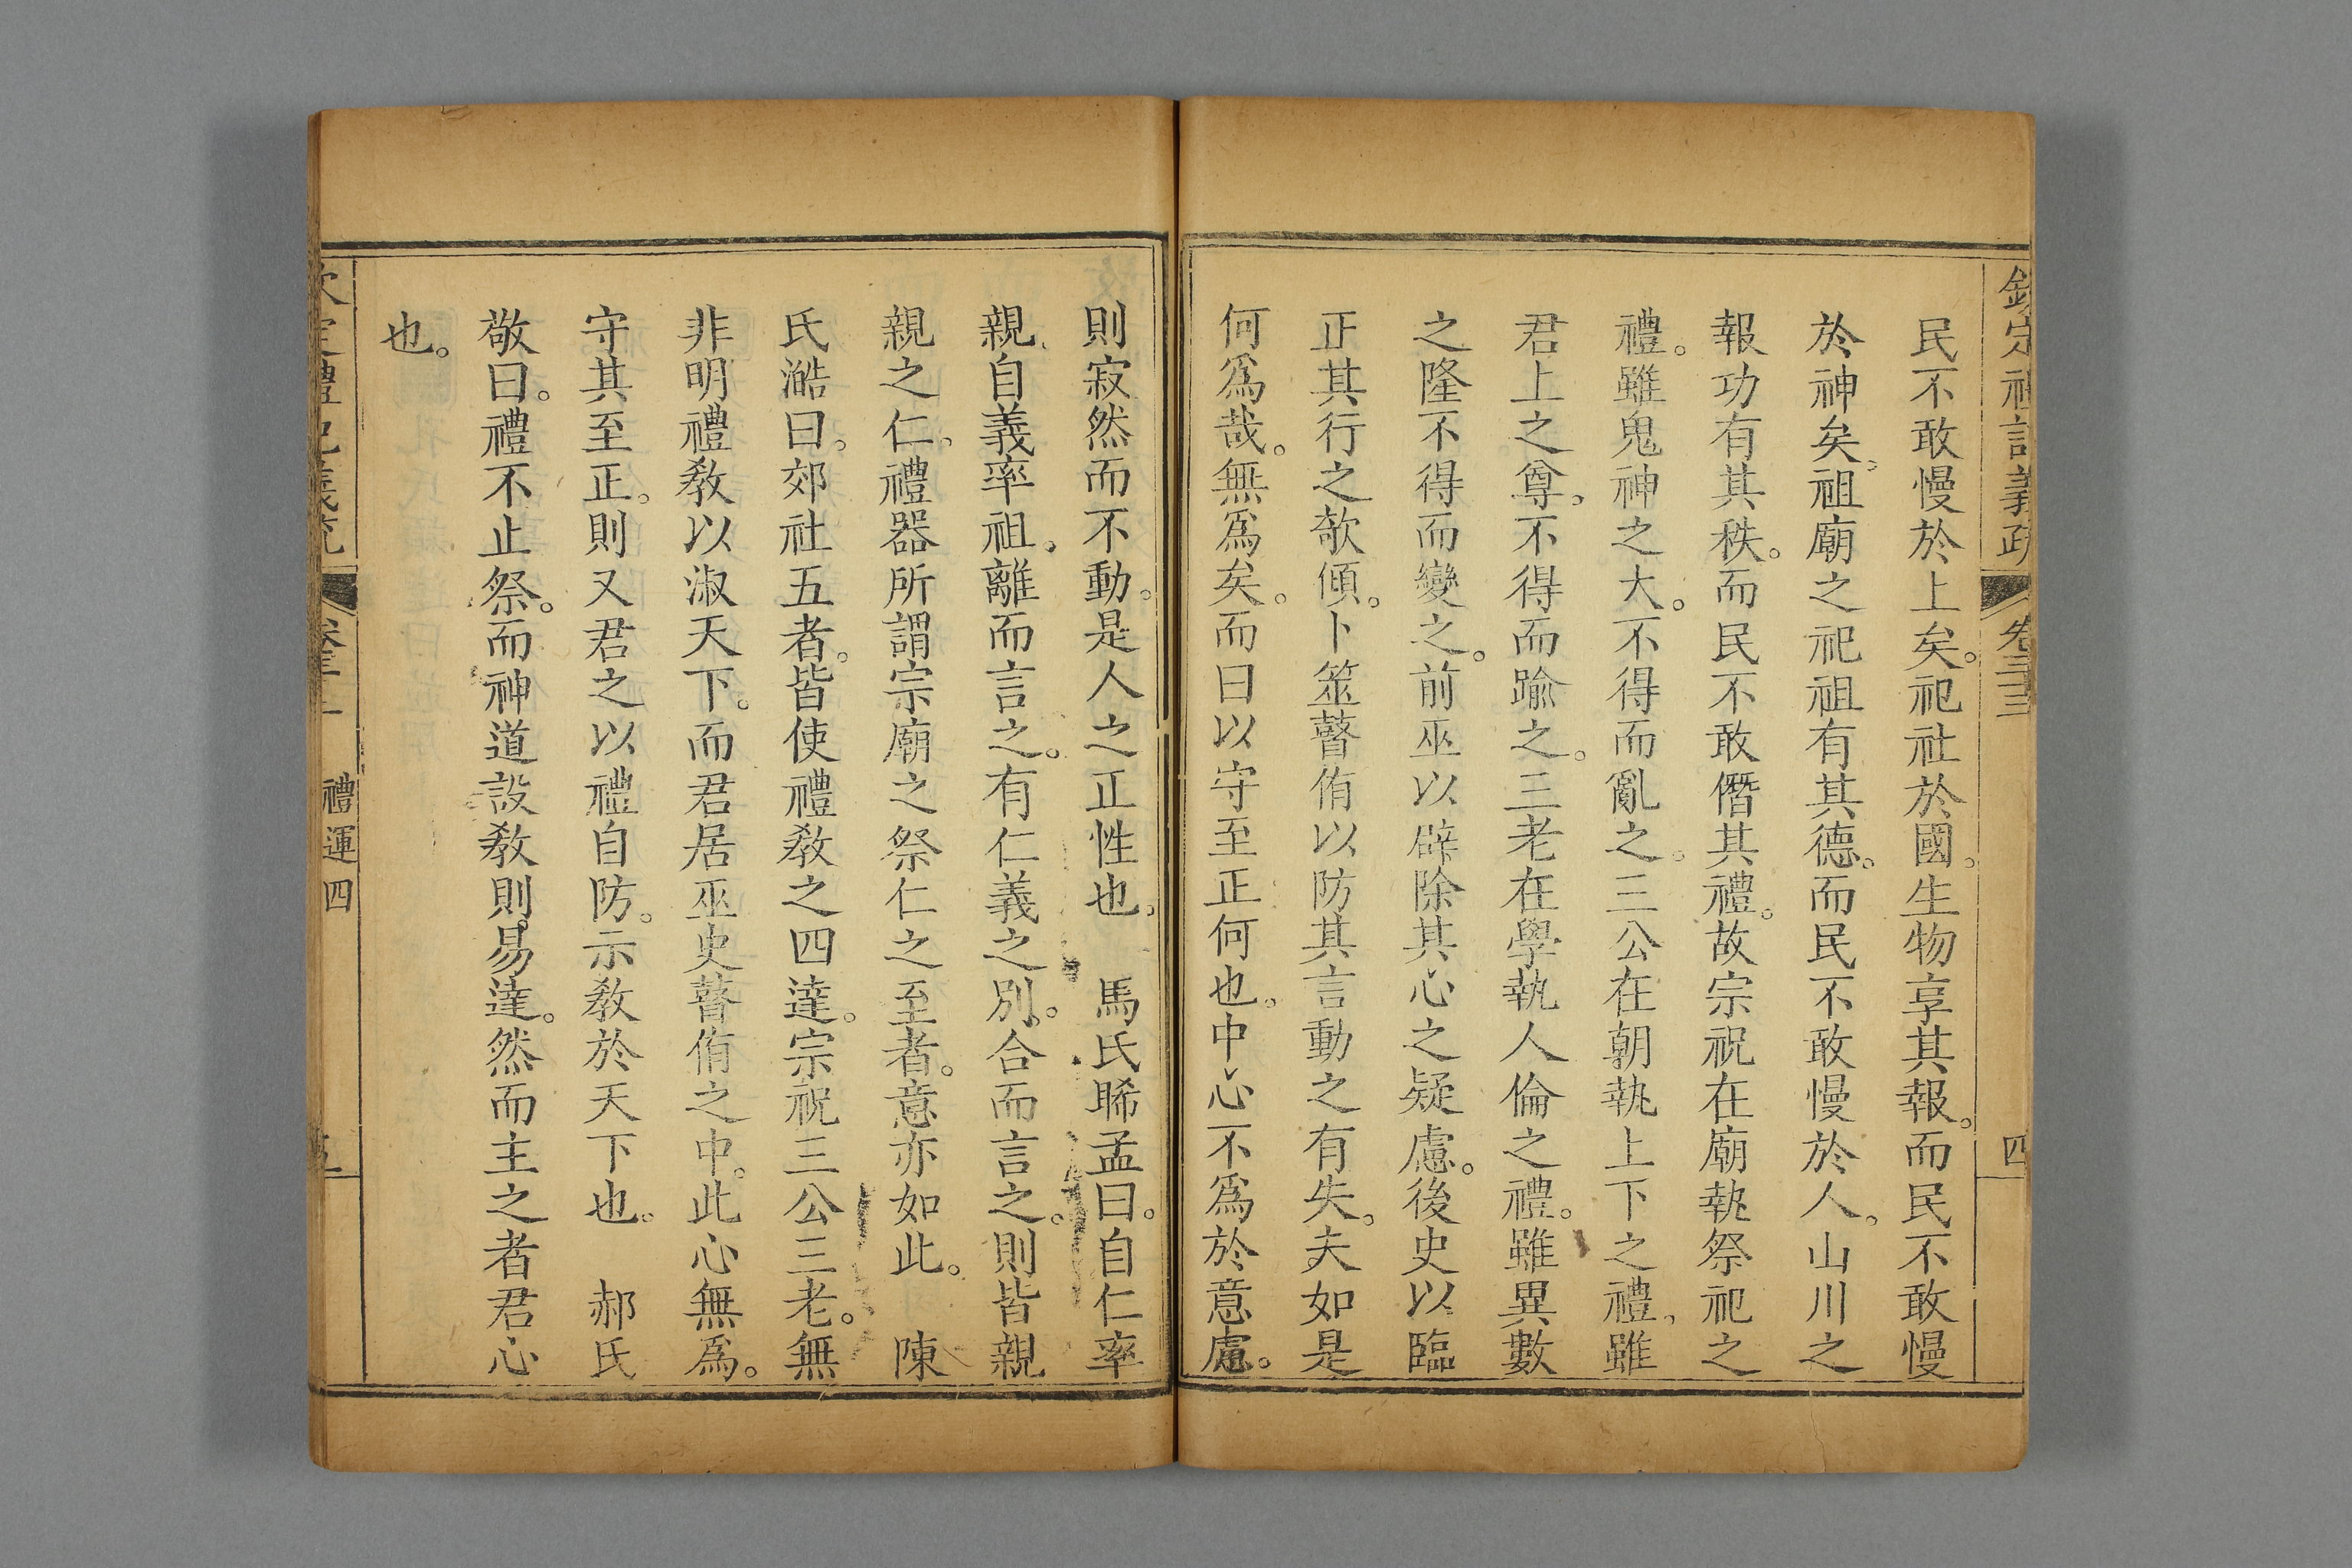 欽定禮記義疏 卷三十二 四
民不敢慢於上矣。祀社於國。生物享其報。而民不敢慢
於神矣。祖廟之祀祖有其德。而民不敢慢於人。山川之
報功有其秩。而民不敢僭其禮。故宗祝在廟執祭祀之
禮。雖鬼神之大。不得而亂之。三公在朝執上下之禮。雖
君上之尊。不得而踰之。三老在學執人倫之禮。雖異數
之隆不得而變之。前巫以辟除其心之疑慮。後史以臨
正其行之欹傾。卜筮瞽侑以防其言動之有失。夫如是
何爲哉。無爲矣。而曰以守至正何也。中心不爲於意慮。
則寂然而不動。是人之正性也。 馬氏睎孟曰。自仁率
親。自義率祖。離而言之。有仁義之別。合而言之。則皆親
親之仁。禮器所謂宗廟之祭仁之至者。意亦如此。 陳
氏澔曰。郊社五者。皆使禮敎之四達。宗祝三公三老。無
非明禮敎以淑天下。而君居巫史瞽侑之中。此心無爲。
守其至正。則又君之以禮自防。示敎於天下也。 郝氏
敬曰。禮不止祭。而神道設敎則易達。然而主之者君心
也。
欽定禮記義疏 卷三十二 禮運四 五